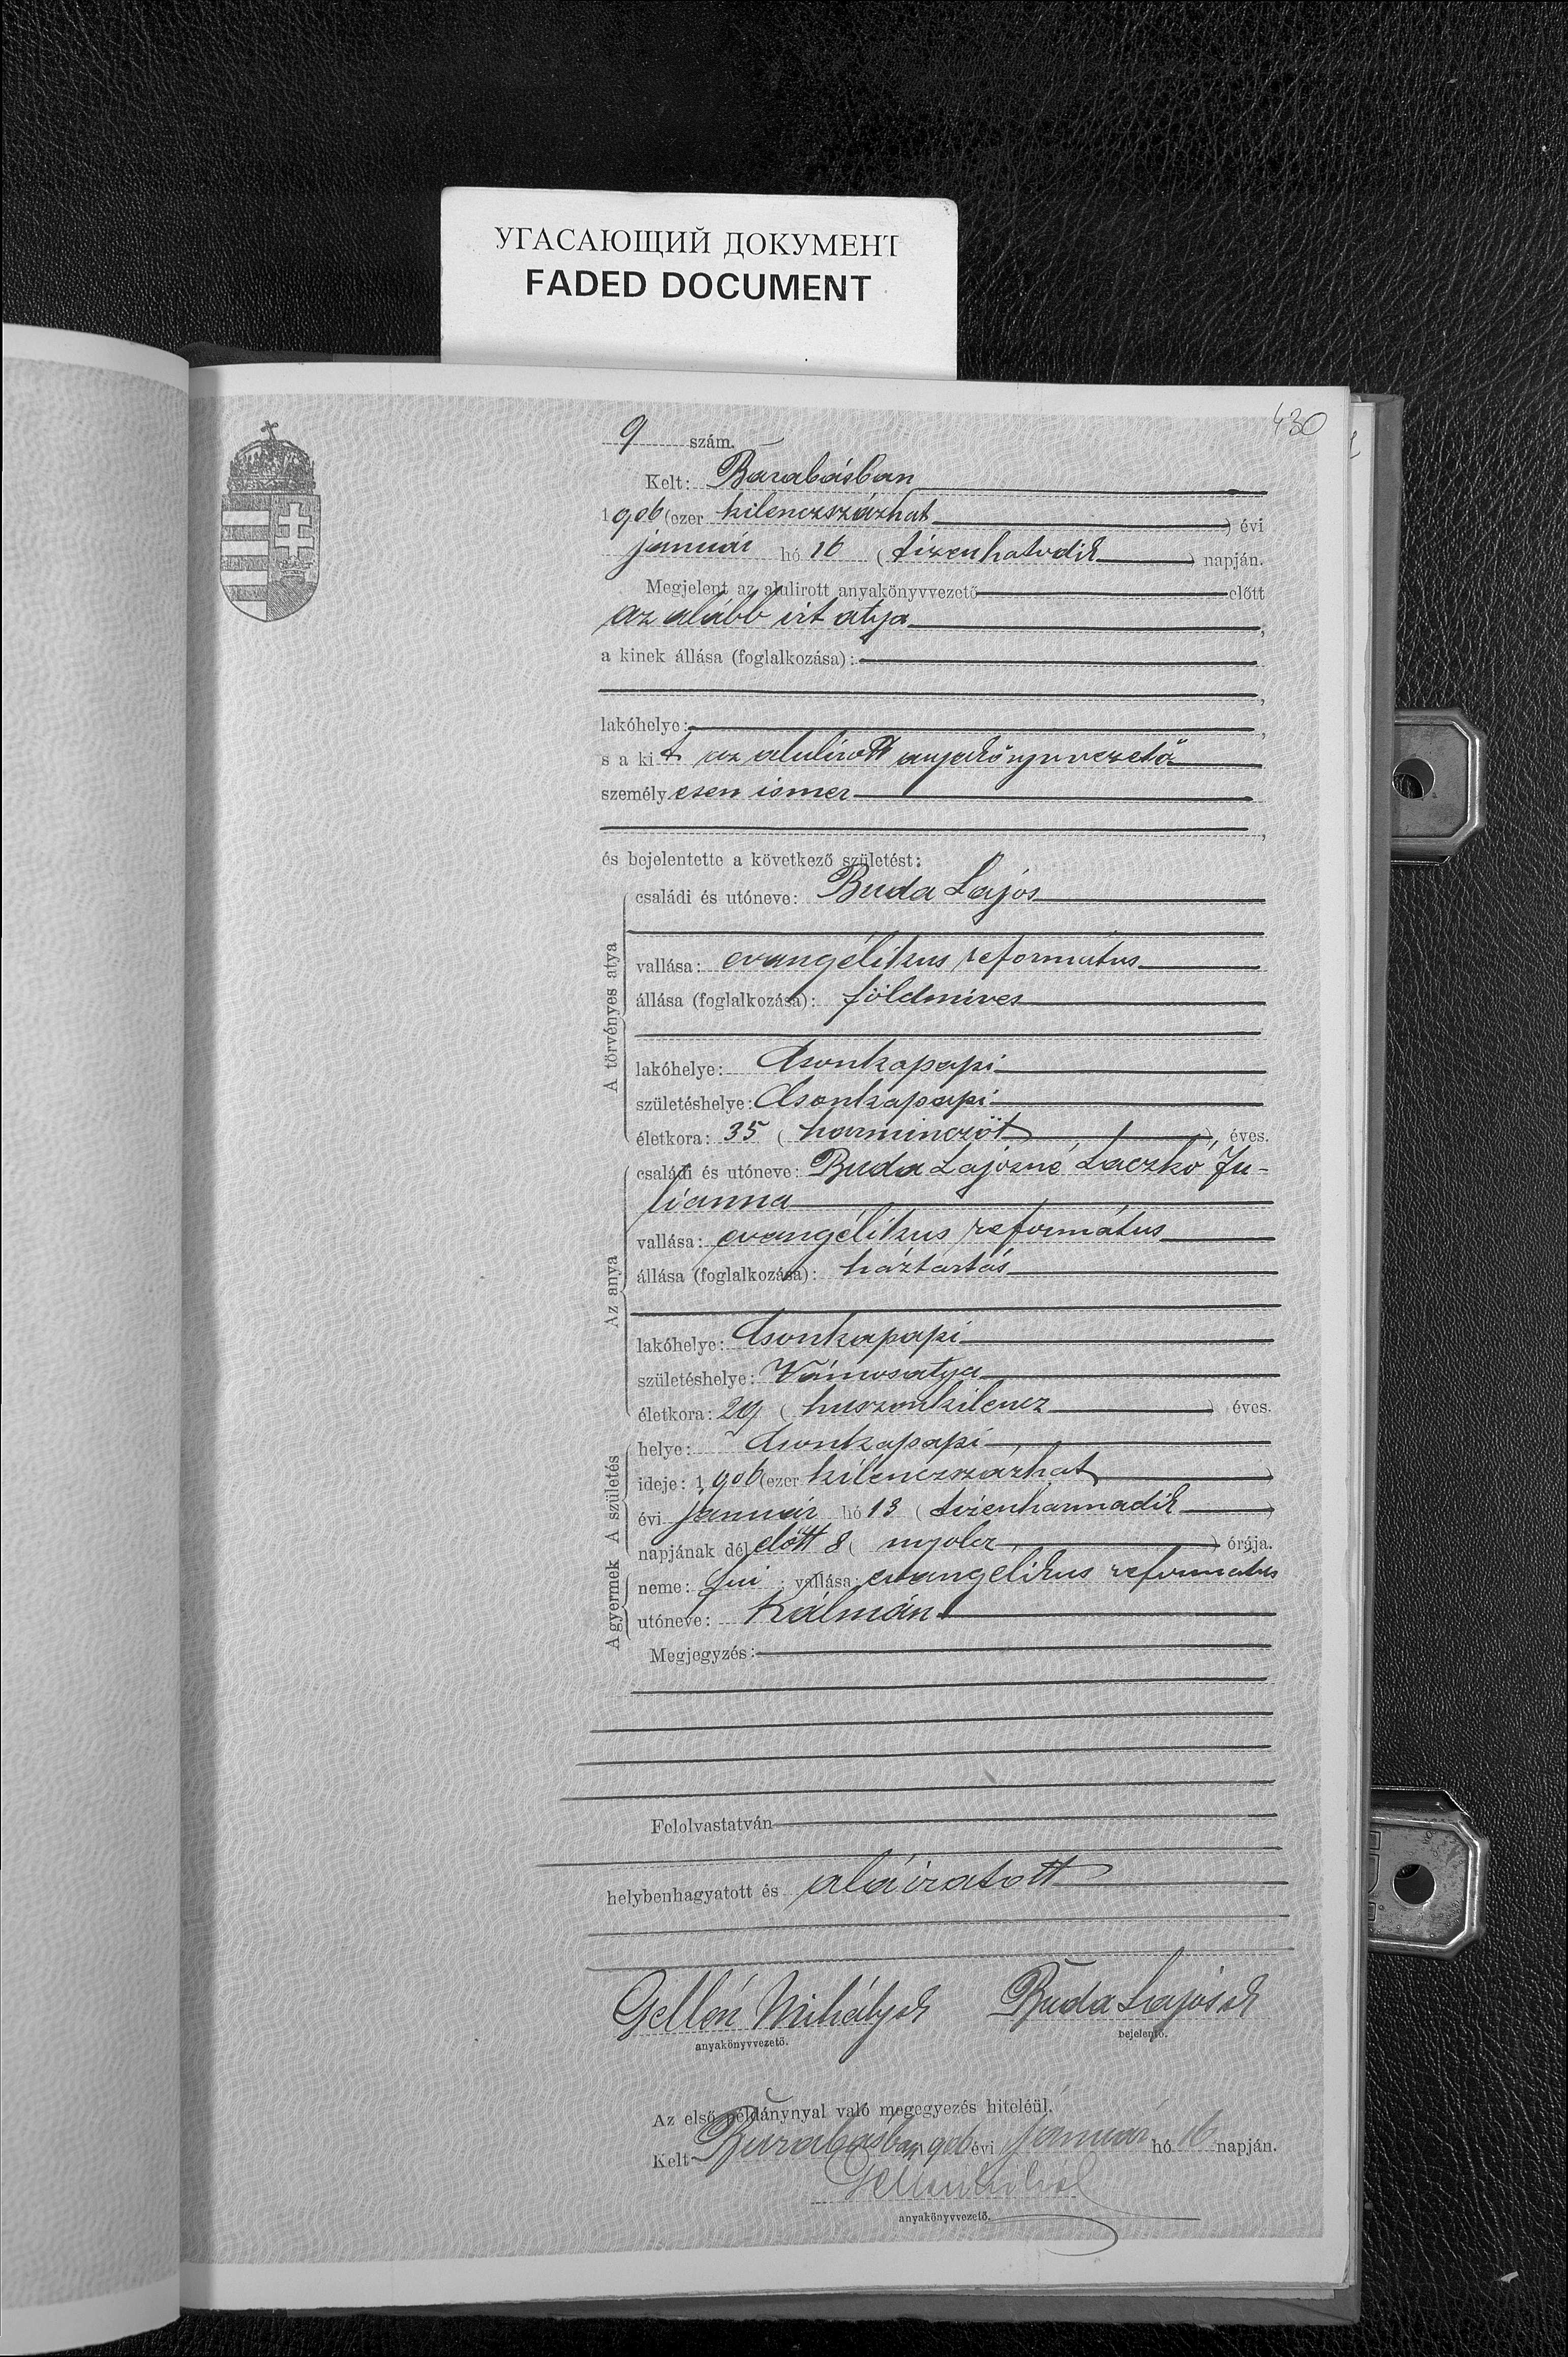 УГАСАЮЩИЙ ДОКУМЕНТ
FADED DOCUMENT
430
9 szám.
Kelt: Barabásban
1906 (ezer kilenczszázhat) évi
január hó 16 (tizenhatodik) napján.
Megjelent az alulirott anyakönyvvezető előtt
az alább irt atya,
a kinek állása (foglalkozása):
,
lakóhelye: ,
s a kit az alulirott anyakönyvvezető
személyesen ismer
,
és bejelentette a következő születést:
A törvényes atya
családi és utóneve: Buda Lajos
vallása: evangélikus református
állása (foglalkozása): földmives
lakóhelye: Csonkapapi
születéshelye: Csonkapapi
életkora: 35 (harminczöt), éves.
Az anya
családi és utóneve: Buda Lajosné Laczkó Ju-
lianna
vallása: evangélikus református
állása (foglalkozása): háztartás
lakóhelye: Csonkapapi
születéshelye: Vámosatya
életkora: 29 (huszonkilencz) éves.
A születés
helye: Csonkapapi
ideje: 1906 (ezer kilenczszázhat)
évi január hó 13 (tizenharmadik)
napjának délelőtt 8 (nyolcz) órája.
A gyermek
neme: fiu; vallása: evangelikus reformatus
utóneve: Kálmán
Megjegyzés:
Felolvastatván
helybenhagyatott és aláiratott
Gellén Mihály sk Buda Lajos sk
anyakönyvvezető. bejelentő.
Az első példánynyal való megegyezés hiteléül.
Kelt Barabásban, 906 évi január hó 16 napján.
Gellén Mihál
anyakönyvvezető.